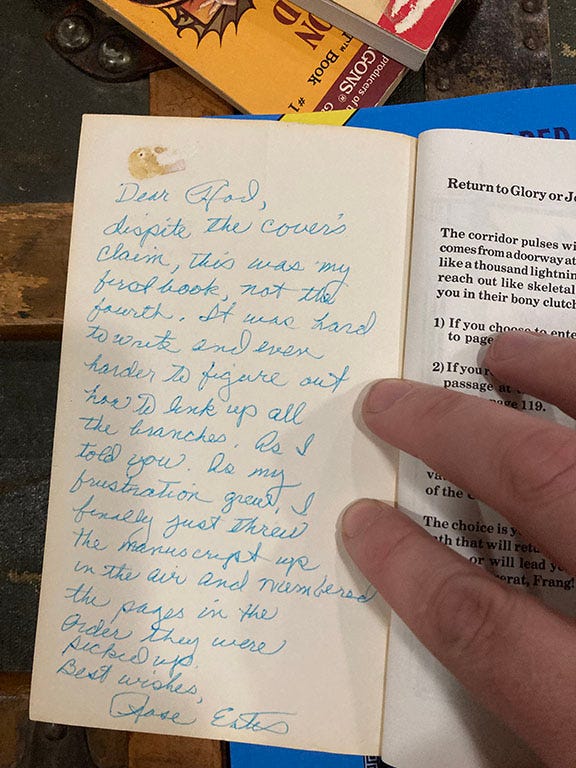 ON
D
R™ Book #1
GONS®
producers of t
Dear Rod,
despite the cover's
claim, this was my
first book, not the
fourth. It was hard
to write and even
harder to figure out
how to link up all
the branches. As I
told you. As my
frustration grew, I
finally just threw
the manuscript up
in the air and numbered
the pages in the
order they were
picked up.
Best wishes,
Rose Estes
Return to Glory or Je
The corridor pulses wi
comes from a doorway at
like a thousand lightnin
reach out like skeletal
you in their bony clutch
1) If you choose to ente
to page
2) If you r
passage at
page 119.
va
of the C
The choice is y
ath that will retu
or will lead yo
serat, Frang!